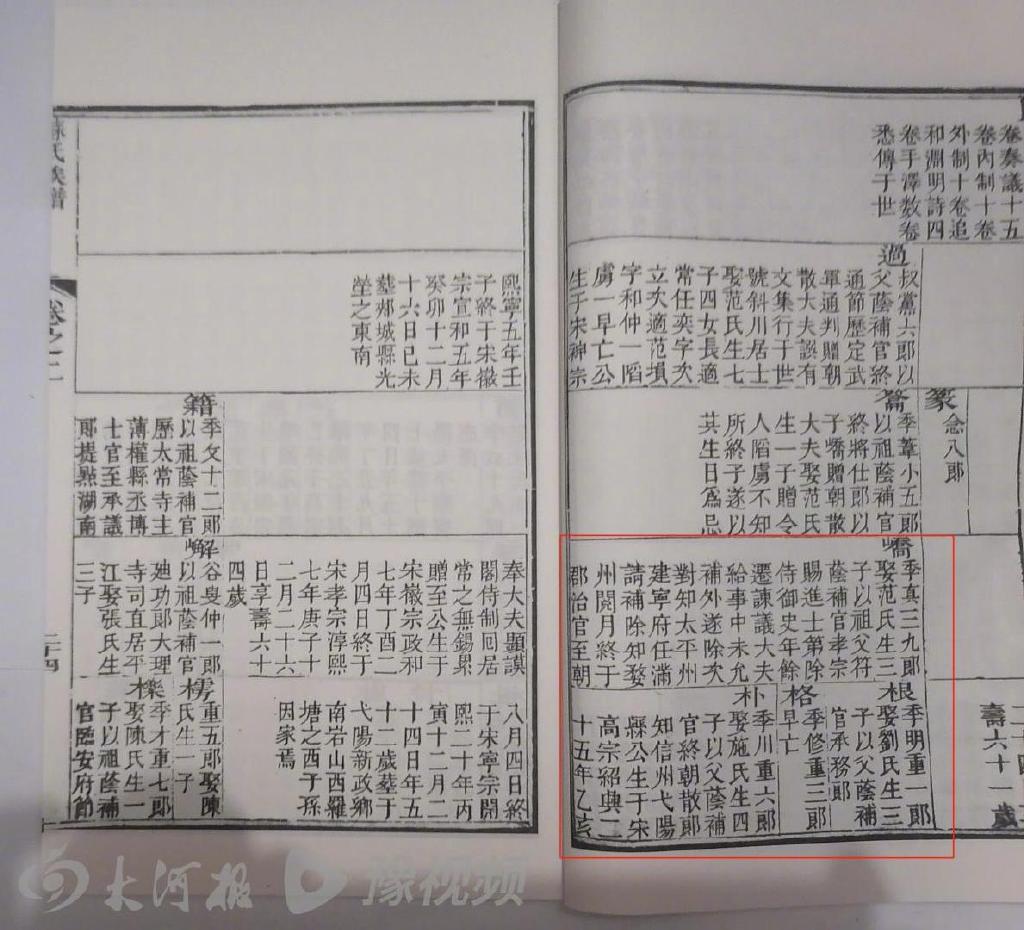 卷奏議十五
卷內制十卷
外制十卷追
和淵明詩四
卷手澤數卷
悉傳于世
過
叔黨六郎以
父蔭補官終
通節歷定武
軍通判贈朝
散大夫諉有
文集行于世
號斜川居士
娶范氏生七
子四女長適
常任奕字次
立次適范塤
字和仲一陷
虜一早亡公
生于宋神宗
篆
念八郎
籥
季葦小五郎
以祖蔭補官
終將仕郎以
子嶠贈朝散
大夫娶范氏
生一子贈令
人陷虜不知
所終子遂以
其生日爲忌
嶠
季真三九郎
娶范氏生三
子以祖父符
蔭補官孝宗
賜進士第除
侍御史年餘
遷諫議大夫
給事中未允
補外遂除次
對知太平州
建寧府任滿
請補除知婺
州閱月終于
郡治官至朝
壽六十一歲
根
季明重一郎
娶劉氏生三
子以父蔭補
官承務郎
格
季修重三郎
早亡
朴
季川重六郎
娶施氏生四
子以父蔭補
官終朝散郎
知信州弋陽
縣公生于宋
高宗紹興二
十五年乙亥
熙寧五年壬
子終于宋徽
宗宣和五年
癸卯十二月
十六日已未
葬郟城縣光
塋之東南
籍
季文十二郎
以祖蔭補官
歷太常寺主
薄權縣丞博
士官至承議
郎提點湖南
奉大夫顯謨
閣侍制回居
常之無錫累
贈至公生于
宋徽宗政和
七年丁酉二
月四日終于
宋孝宗淳熙
七年庚子十
二月二十六
日享壽六十
四歲
嶰
谷叟仲一郎
以祖蔭補官
廸功郎大理
寺司直居平
江娶張氏生
三子
八月四日終
于宋寧宗開
熙二十年丙
寅十二月二
十四日年五
十二歲葬于
弋陽新政鄉
南岩山西羅
塘之西子孫
因家焉
樗
重五郎娶陳
氏生一子
櫟
季才重七郎
娶陳氏生一
子以祖蔭補
官臨安府節
蘇氏族譜
卷之二
二十四
大河报
豫视频